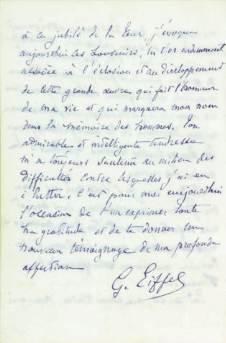 à ce jubilé de la Tour, j'évoque
aujourd'hui les souvenirs, tu t'es ardemment
associée à l'éclosion et au développement
de cette grande œuvre qui fait l'honneur
de ma vie et qui marquera mon nom
dans la mémoire des hommes. Ton
admirable et intelligente tendresse
m'a toujours soutenu au milieu des
difficultés contre lesquelles j'ai eu
à lutter, c'est pour moi aujourd'hui
l'occasion de t'en exprimer toute
ma gratitude et de te donner un
nouveau témoignage de ma profonde
affection
G. Eiffel